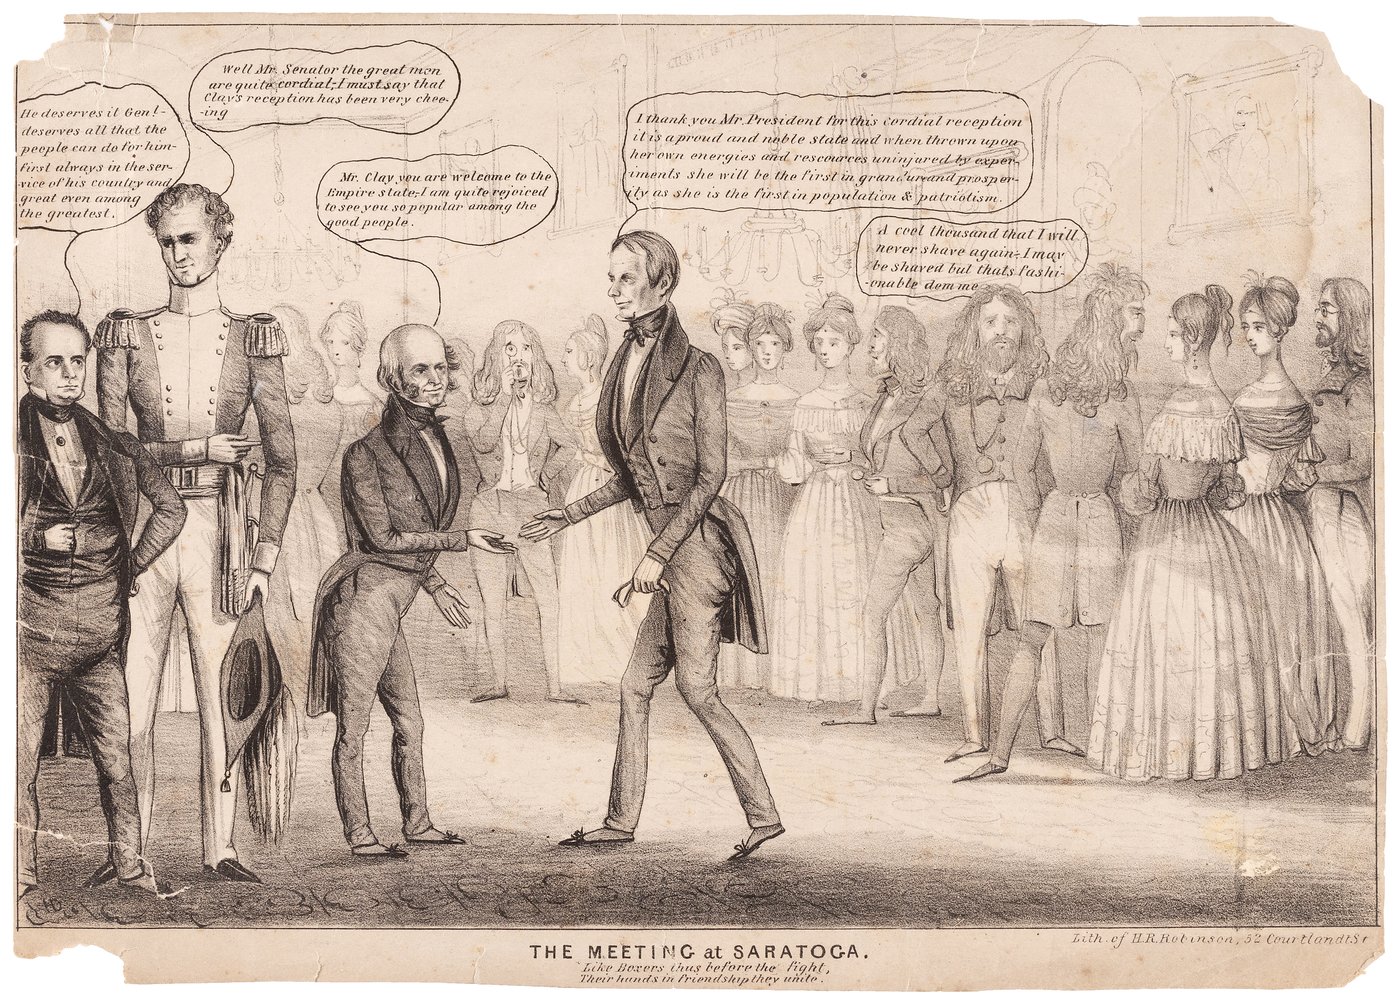 He deserves it Gen!-
deserves all that the
people can do for him-
first always in the ser-
vice of his country and
great even among
the greatest.
Well Mr. Senator the great men
are quite cordial,-I must say that
Clay's reception has been very chee-
-ing
Mr. Clay you are welcome to the
Empire state,-I am quite rejoiced
to see you so popular among the
good people.
I thank you Mr. President for this cordial reception
it is a proud and noble state and when thrown upon
her own energies and rescources uninjured by exper-
iments she will be the first in grandur and prosper-
ity as she is the first in population & patriotism.
A cool thousand that I will
never shave again-, I may
be shaved but thats fashi-
-onable demme
THE MEETING at SARATOGA.
Like Boxers thus before the fight,
Their hands in friendship they unite.
Lith. of H.R. Robinson, 52 Courtlandt St